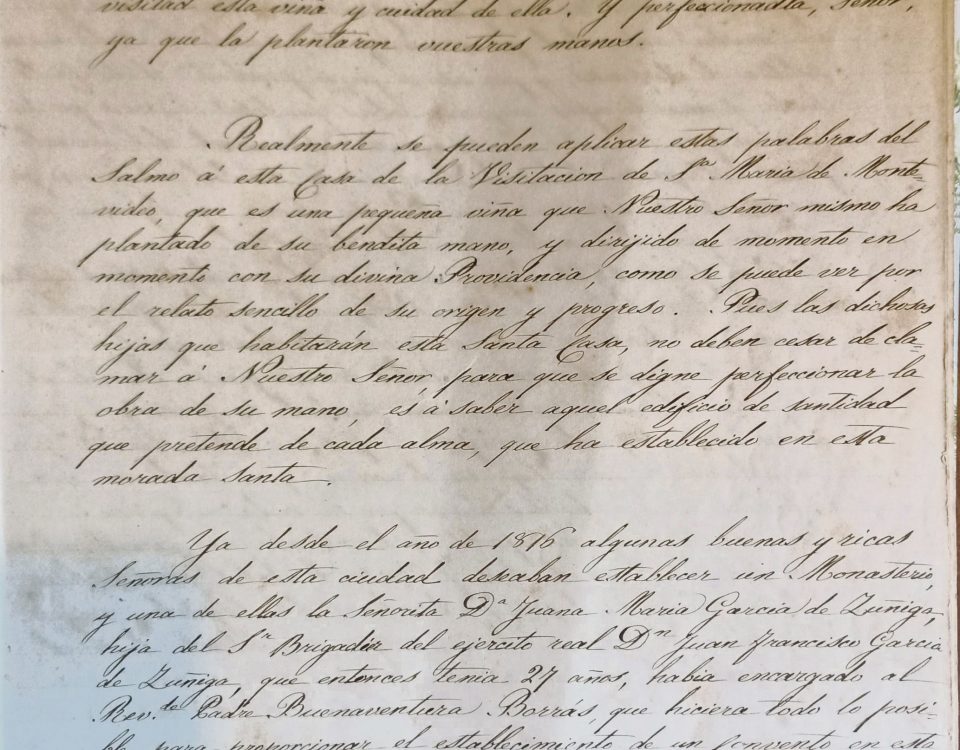 visitad esta viña y cuidad de ella. Y perfeccionadla, Señor,
ya que la plantaron vuestras manos.
Realmente se pueden aplicar estas palabras del
Salmo á esta Casa de la Visitacion de Sta Maria de Monte-
video, que es una pequeña viña que Nuestro Señor mismo ha
plantado de su bendita mano, y dirijido de momento en
momento con su divina Providencia, como se puede ver por
el relato sencillo de su origen y progreso. Pues las dichosas
hijas que habitarán esta Santa Casa, no deben cesar de cla-
mar á Nuestro Señor, para que se digne perfeccionar la
obra de su mano, és á saber aquel edificio de santidad
que pretende de cada alma, que ha establecido en esta
morada santa.
Ya desde el año de 1816 algunas buenas y ricas
Señoras de esta ciudad deseaban establecer un Monasterio,
y una de ellas la Señorita Da Juana Maria Garcia de Zúñiga,
hija del Sr Brigadier del ejercito real Dn Juan Francisco Garcia
de Zúñiga, que entonces tenia 27 años, habia encargado al
Rev.do Padre Buenaventura Borrás, que hiciera todo lo posi-
ble para proporcionar el establecimiento de un convento en esta